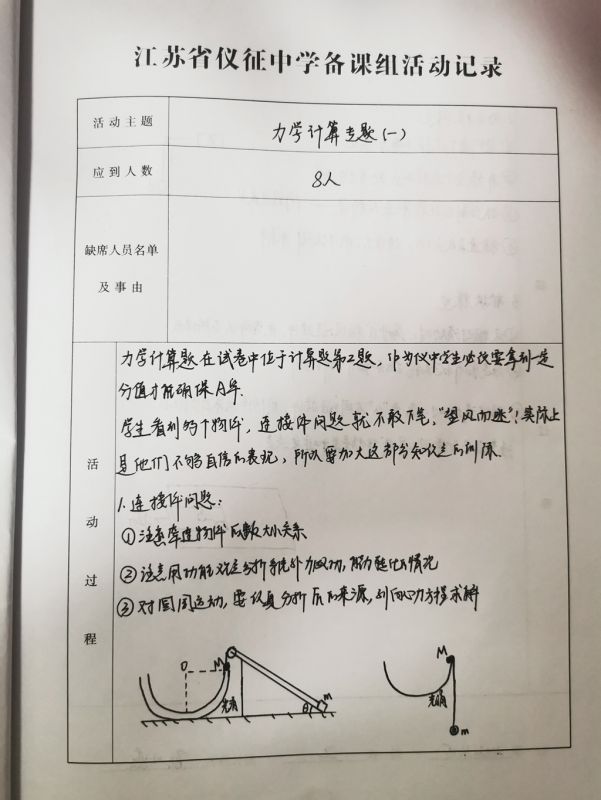 江苏省仪征中学备课组活动记录
活动主题
力学计算专题(一)
应到人数
8人
缺席人员名单
及事由
活动过程
力学计算题在试卷中位于计算题第2题,作为仪中学生必须要拿到一定
分值才能确保A等.
学生看到多个物体,连接体问题就不敢下笔,"望风而逃"!实际上
是他们不够自信的表现,所以要加大这部分知识点的训练.
1.连接体问题:
①注意牵连物体的数大小关系
②注意用功能观点分析系统外力做功,能力转化的情况
③对圆周运动,要认真分析力的来源,列向心力方程求解
O
M
m
θ
光滑
M
光滑
m